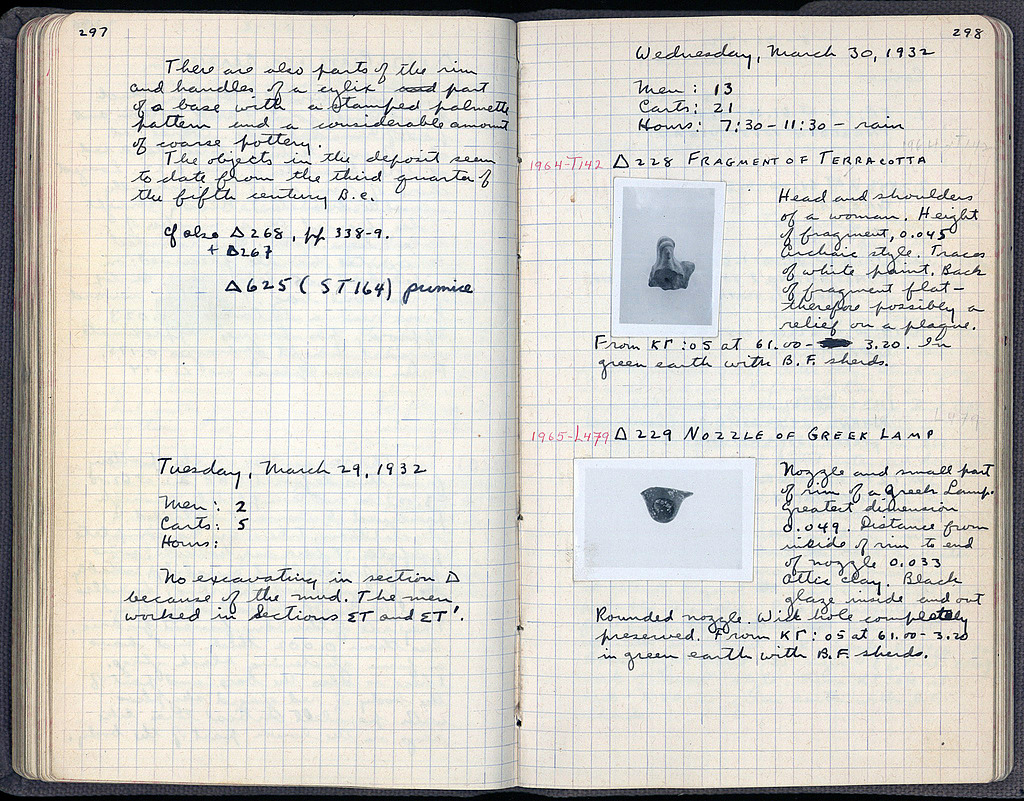 297
There are also parts of the rim
and handles of a cylix and part
of a base with a stamped palmette
pattern and a considerable amount
of coarse pottery.
The objects in the deposit seem
to date from the third quarter of
the fifth century B.C.
cf also Δ268, pp 338-9.
+ Δ267
Δ625 (ST164) pumice
Tuesday, March 29, 1932
Men: 2
Carts: 5
Hours:
No excavating in section Δ
because of the mud. The men
worked in sections ΣΤ and ΣΤ'.
298
Wednesday, March 30, 1932
Men: 13
Carts: 21
Hours: 7:30-11:30 - rain
1964-T142 Δ228 FRAGMENT OF TERRACOTTA
Head and shoulders
of a woman. Height
of fragment, 0.045
Archaic style. Traces
of white paint. Back
of fragment flat-
therefore possibly a
relief on a plaque.
From ΚΓ:05 at 61.00- 3.20. In
green earth with B.F. sherds.
L479
1965-L479 Δ229 NOZZLE OF GREEK LAMP
Nozzle and small part
of rim of a Greek Lamp.
Greatest dimension
0.049. Distance from
inside of rim to end
of nozzle 0.033
Attic clay. Black
glaze inside and out
Rounded nozzle. Wick hole completely
preserved. From ΚΓ:05 at 61.00-3.20
in green earth with B.F. sherds.